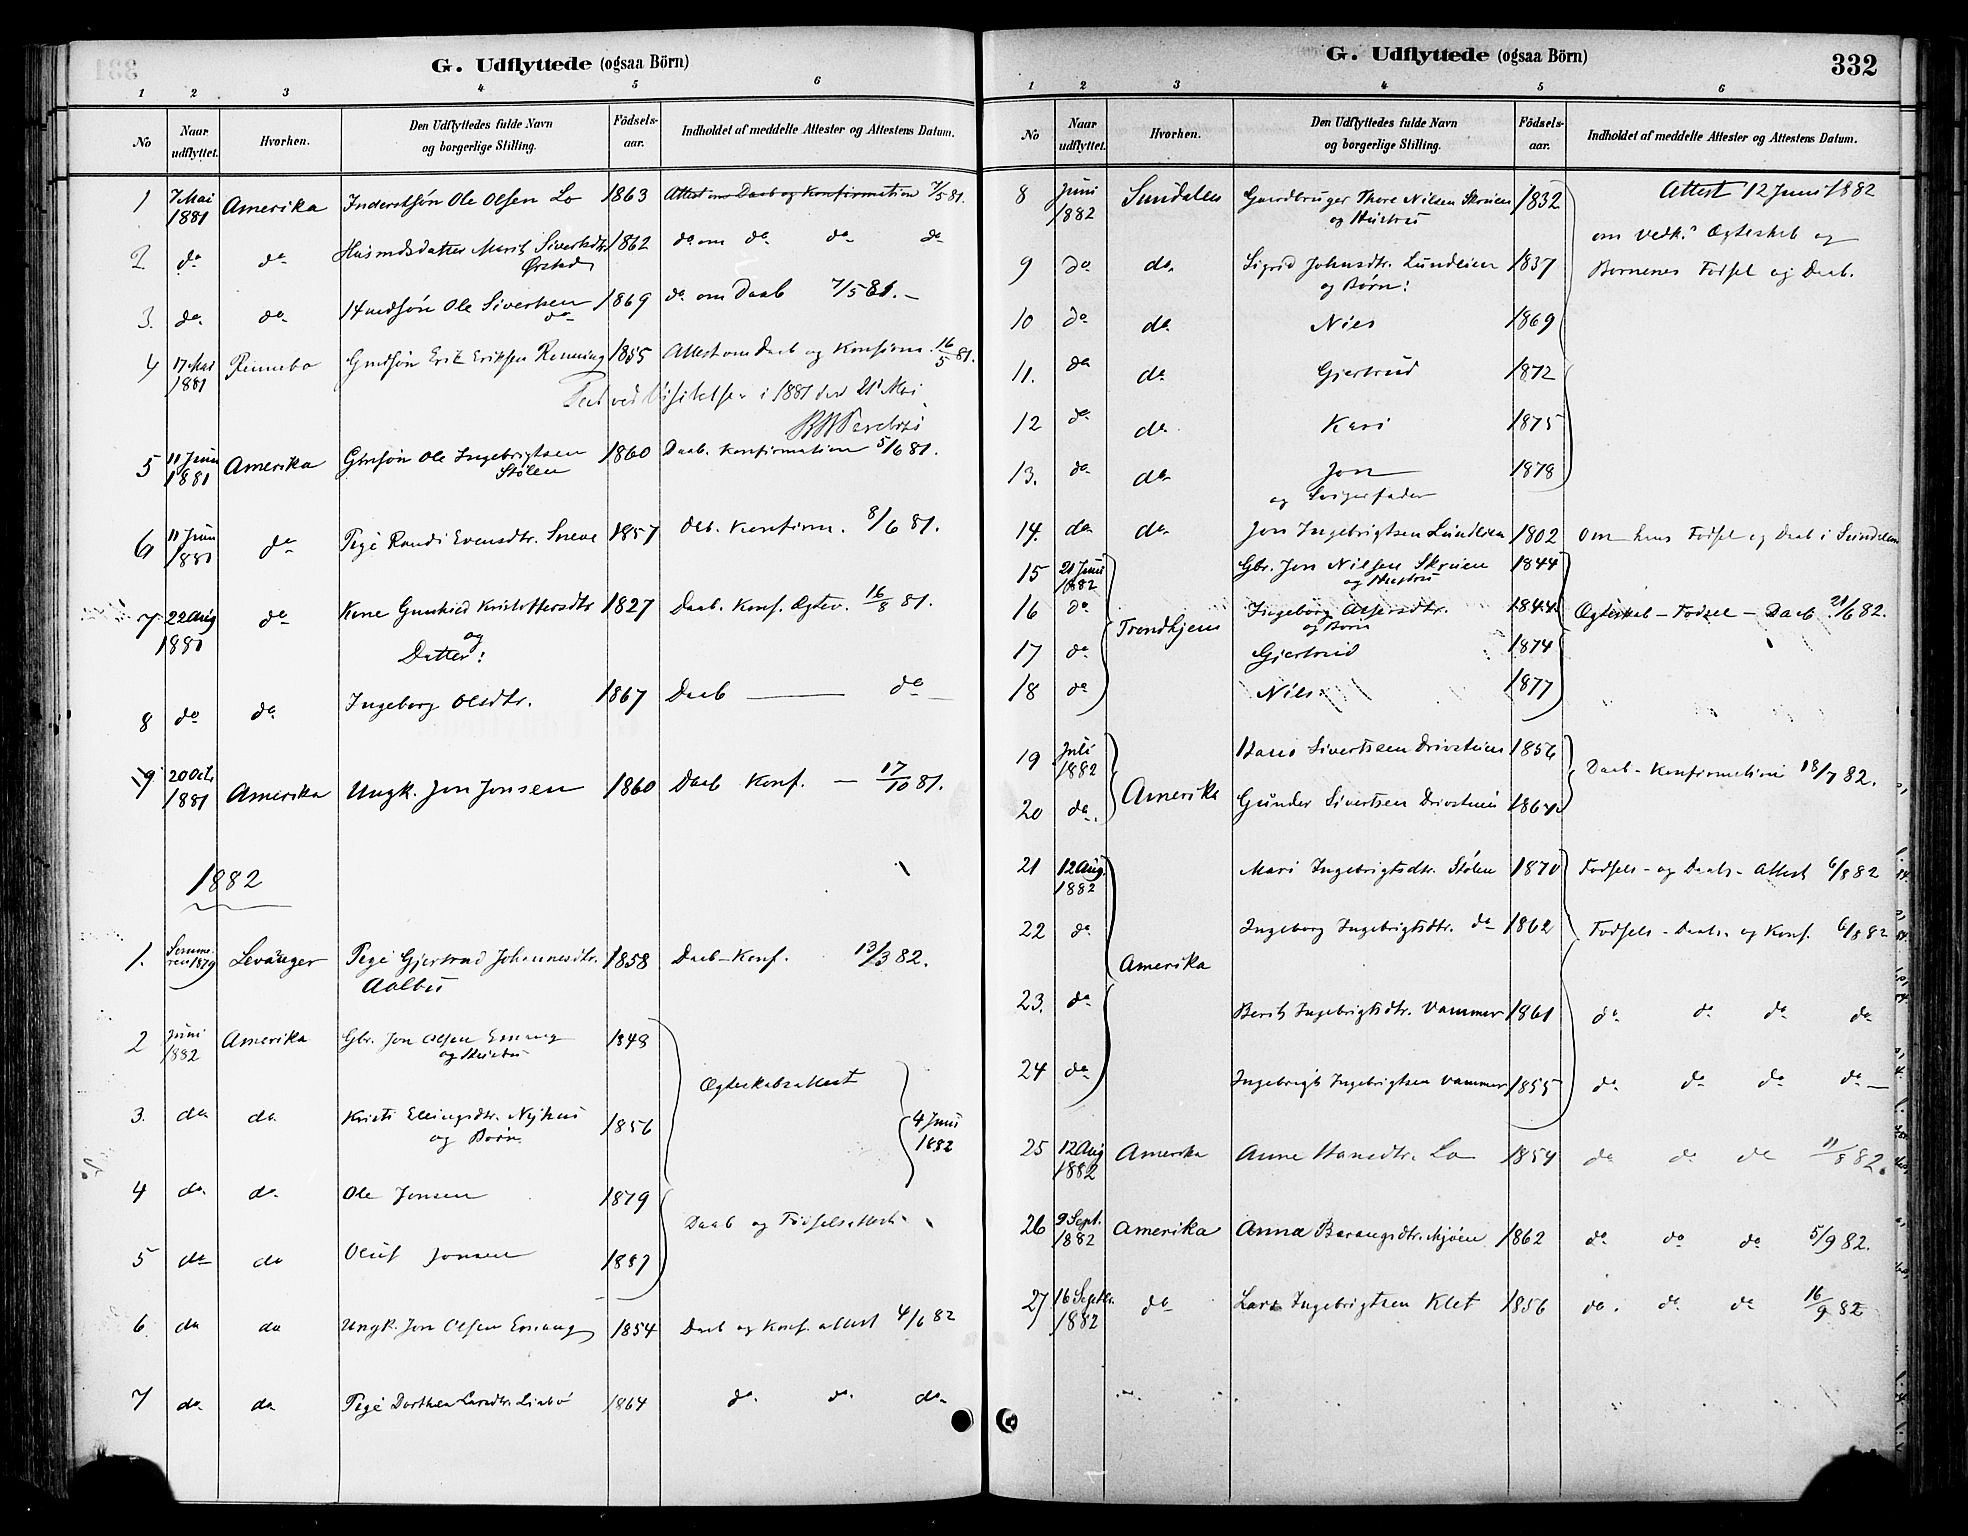 G. Udflyttede (ogsaa Börn)
1 2 3 4 5 6
No Naar udflyttet. Hvorhen. Den Udflyttedes fulde Navn og borgerlige Stilling. Födsels-aar. Indholdet af meddelte Attester og Attestens Datum.
1 7 Mai 1881 Amerika Inderstsøn Ole Olsen Lo 1863 Attest om Daab og Konfirmation 7/5 81.
2 do do Husmdsdatter Marit Sivertsdtr. 1862 do om do do do
3. do do Ole Sivertsen do 1869 do om Daab 7/5 81. –
4 17 Mai 1881 Rennebo Gmdsøn Erik Eriksen Renning 1855 Attest om Daab og Konfirm. 16/5 81.
Seet ved Visitatsen i 1881 den 21 Mai
5 11 Juni 1881 Amerika Gbrsøn Ole Ingebrigtsen Stølen 1860 Daab. Konfirmation 5/6 81.
6 11 Juni 1881 do Pige Randi Evensdtr. Sneve 1857 Daab. Konfirm. 8/6 81.
7 22 Aug 1881 do Kone Gunhild Kristoffersdtr 1827 Daab. Konf. Ægtev. 16/8 81.
og
Datter:
8 do do Ingeborg Olsdtr. 1867 Daab — do
9 20 Oct. 1881 Amerika Ungk. Jon Jonsen 1860 Daab Konf. – 17/10 81.
1882
1. Sommeren 1879 Levanger Pige Gjertrud Johannesdtr. Aalbu 1858 Daab – Konf. 13/3 82.
2 Juni 1882 Amerika Gbr. Jon Olsen 1848
og Hustru
Ægteskabsattest
3. do do Kristi Ellingsdtr. Nyhus 1856 4 Juni 1882
og Børn
4 do do Ole Jonsen 1879
Daab og Fødselsattest
5 do do Oluf Jonsen
6 do do Ungk. Jon Olsen 1854 Daab og Konf. attest 4/6 82
7 do do Pige Dorthea Larsdtr. 1864 do do do
G. Udflyttede (ogsaa Börn) 332
1 2 3 4 5 6
No Naar udflyttet. Hvorhen. Den Udflyttedes fulde Navn og borgerlige Stilling. Födsels-aar. Indholdet af meddelte Attester og Attestens Datum.
8 Juni 1882 Sundalen Gaardbruger Thore Nilsen Skruen 1832 Attest 12 Juni 1882
og Hustru
om vedk. Ægteskab og
9 do do Sigrid Johnsdtr. Lundlien 1837 Børnenes Fødsel og Daab.
og Børn:
10 do do Niels 1869
11. do do Gjertrud 1872
12 do do Kari 1875
13. do do Jon 1878
og Svigerfader
14. do do Jon Ingebrigtsen Lundlien 1802 Om hans Fødsel og Daab i Sundalen
15 21 Juni 1882 Gbr. Jon Nilsen Skruen 1844
og Hustru
16 do Trondhjem Ingeborg 1844 Ægteskab – Fødsel – Daab 21/6 82.
og Børn
17 do Gjertrud 1874
18 do Nils 1877
19 Juli 1882 Hans Sivertsen Drivstuen 1856
Amerika Daab – Konfirmation 18/7 82.
20 do. Gunder Sivertsen Drivstuen
21 12 Aug. 1882 Mari Ingebrigtsdtr. Stølen 1870 Fødsels – og Daabs – Attest 6/8 82
22 do Ingeborg Ingebrigtsdtr. do 1862 Fødsels – Daabs – og Konf. 6/8 82
Amerika
23. do Berit Ingebrigtsdtr. Vammer 1861 do do do do
24 do Ingebrigt Ingebrigtsen Vammer 1855 do do do do –
25 12 Aug 1882 Amerika Anne Hansdtr. Lo 1854 do do do 11/8 82.
26 9 Sept. 1882 Amerika Anna Mjøen 1862 do do do 5/9 82.
27 16 Septbr. 1882 do Lars Ingebrigtsen Klet 1856 do. do do 16/9 82